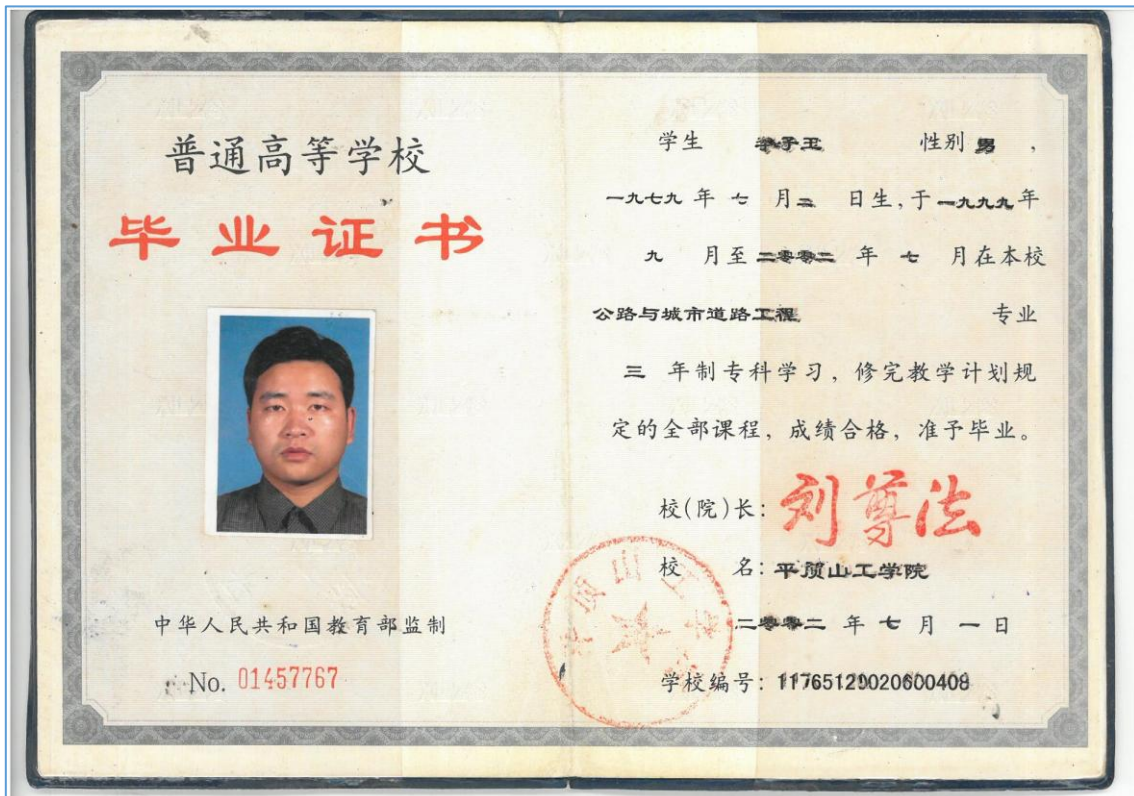 普通高等学校
毕业证书
中华人民共和国教育部监制
No. 01457767
学生 李子卫 性别 男,
一九七九 年 七 月 二 日生,于 一九九九 年
九 月至 二零零二 年 七 月在本校
公路与城市道路工程 专业
三 年制专科学习,修完教学计划规
定的全部课程,成绩合格,准予毕业。
校(院)长: 刘尊法
校 名: 平顶山工学院
二零零二 年 七 月 一 日
学校编号: 11765120020600408
平顶山工学院